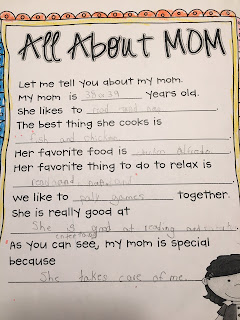 All About MOM
Let me tell you about my mom.
My mom is 38or39 years old.
She likes to read good
The best thing she cooks is
fish and chicken
Her favorite food is chicken alfredo
Her favorite thing to do to relax is
read and
we like to paly games together.
She is really good at
She is good at reading and
As you can see, my mom is special
because
She takes care of me.